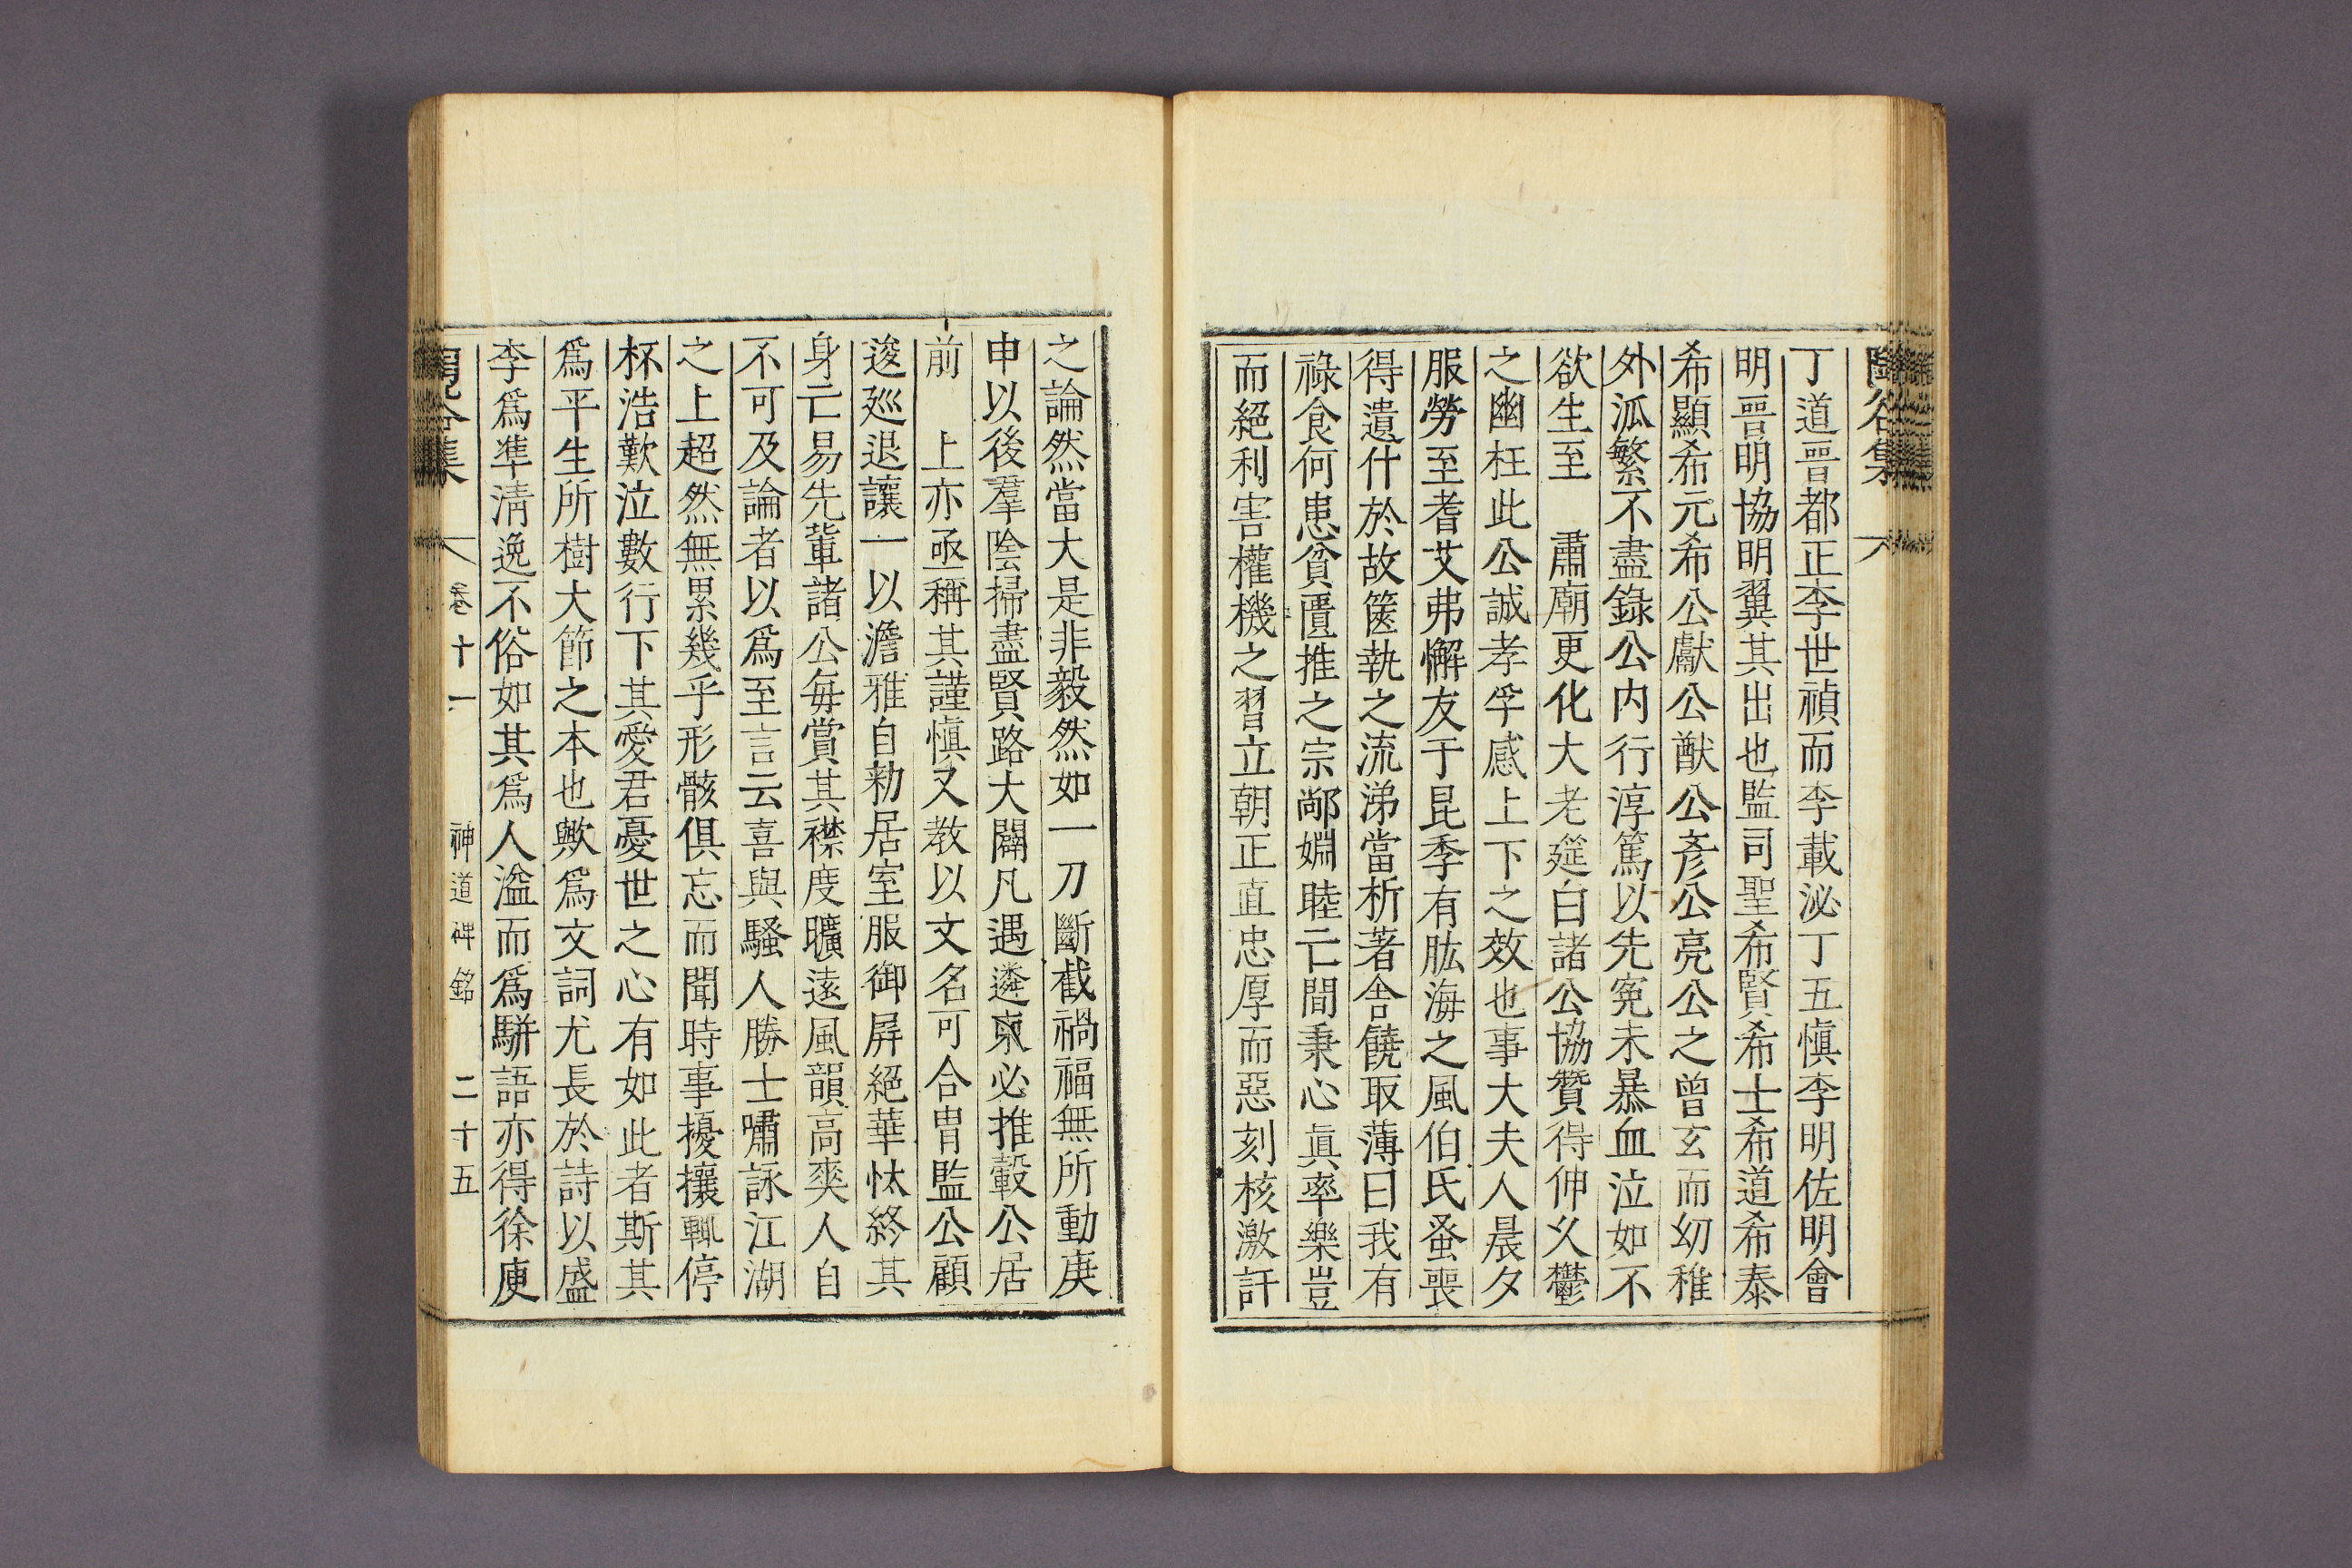 陶谷集
丁道晉都正李世禎而李載泌丁五愼李明佐明會
明晉明協明翼其出也監司聖希賢希士希道希泰
希顯希元希公獻公猷公彥公亮公之曾玄而幼稚
外泒繁不盡錄公内行淳篤以先寃未暴血泣如不
欲生至 肅廟更化大老筵白諸公協贊得伸久鬱
之幽枉此公誠孝孚感上下之效也事大夫人晨夕
服勞至耆艾弗懈友于昆季有肱海之風伯氏蚤喪
得遺什於故篋執之流涕當析著舍饒取薄曰我有
祿食何患貧匱推之宗鄰婣睦亡間秉心眞率樂豈
而絕利害權機之習立朝正直忠厚而惡刻核激訐
之論然當大是非毅然如一刀斷截禍福無所動庚
申以後羣陰掃盡賢路大闢凡遇遴柬必推轂公居
前 上亦亟稱其謹愼又教以文名可合冑監公顧
逡廵退讓一以澹雅自勑居室服御屛絕華忲終其
身亡易先輩諸公每賞其襟度曠遠風韻高爽人自
不可及論者以爲至言云喜與騷人勝士嘯詠江湖
之上超然無累幾乎形骸俱忘而聞時事擾攘輒停
杯浩歎泣數行下其愛君憂世之心有如此者斯其
爲平生所樹大節之本也歟爲文詞尤長於詩以盛
李爲準淸逸不俗如其爲人溢而爲騈語亦得徐庾
陶谷集 卷十一 神道碑銘 二十五